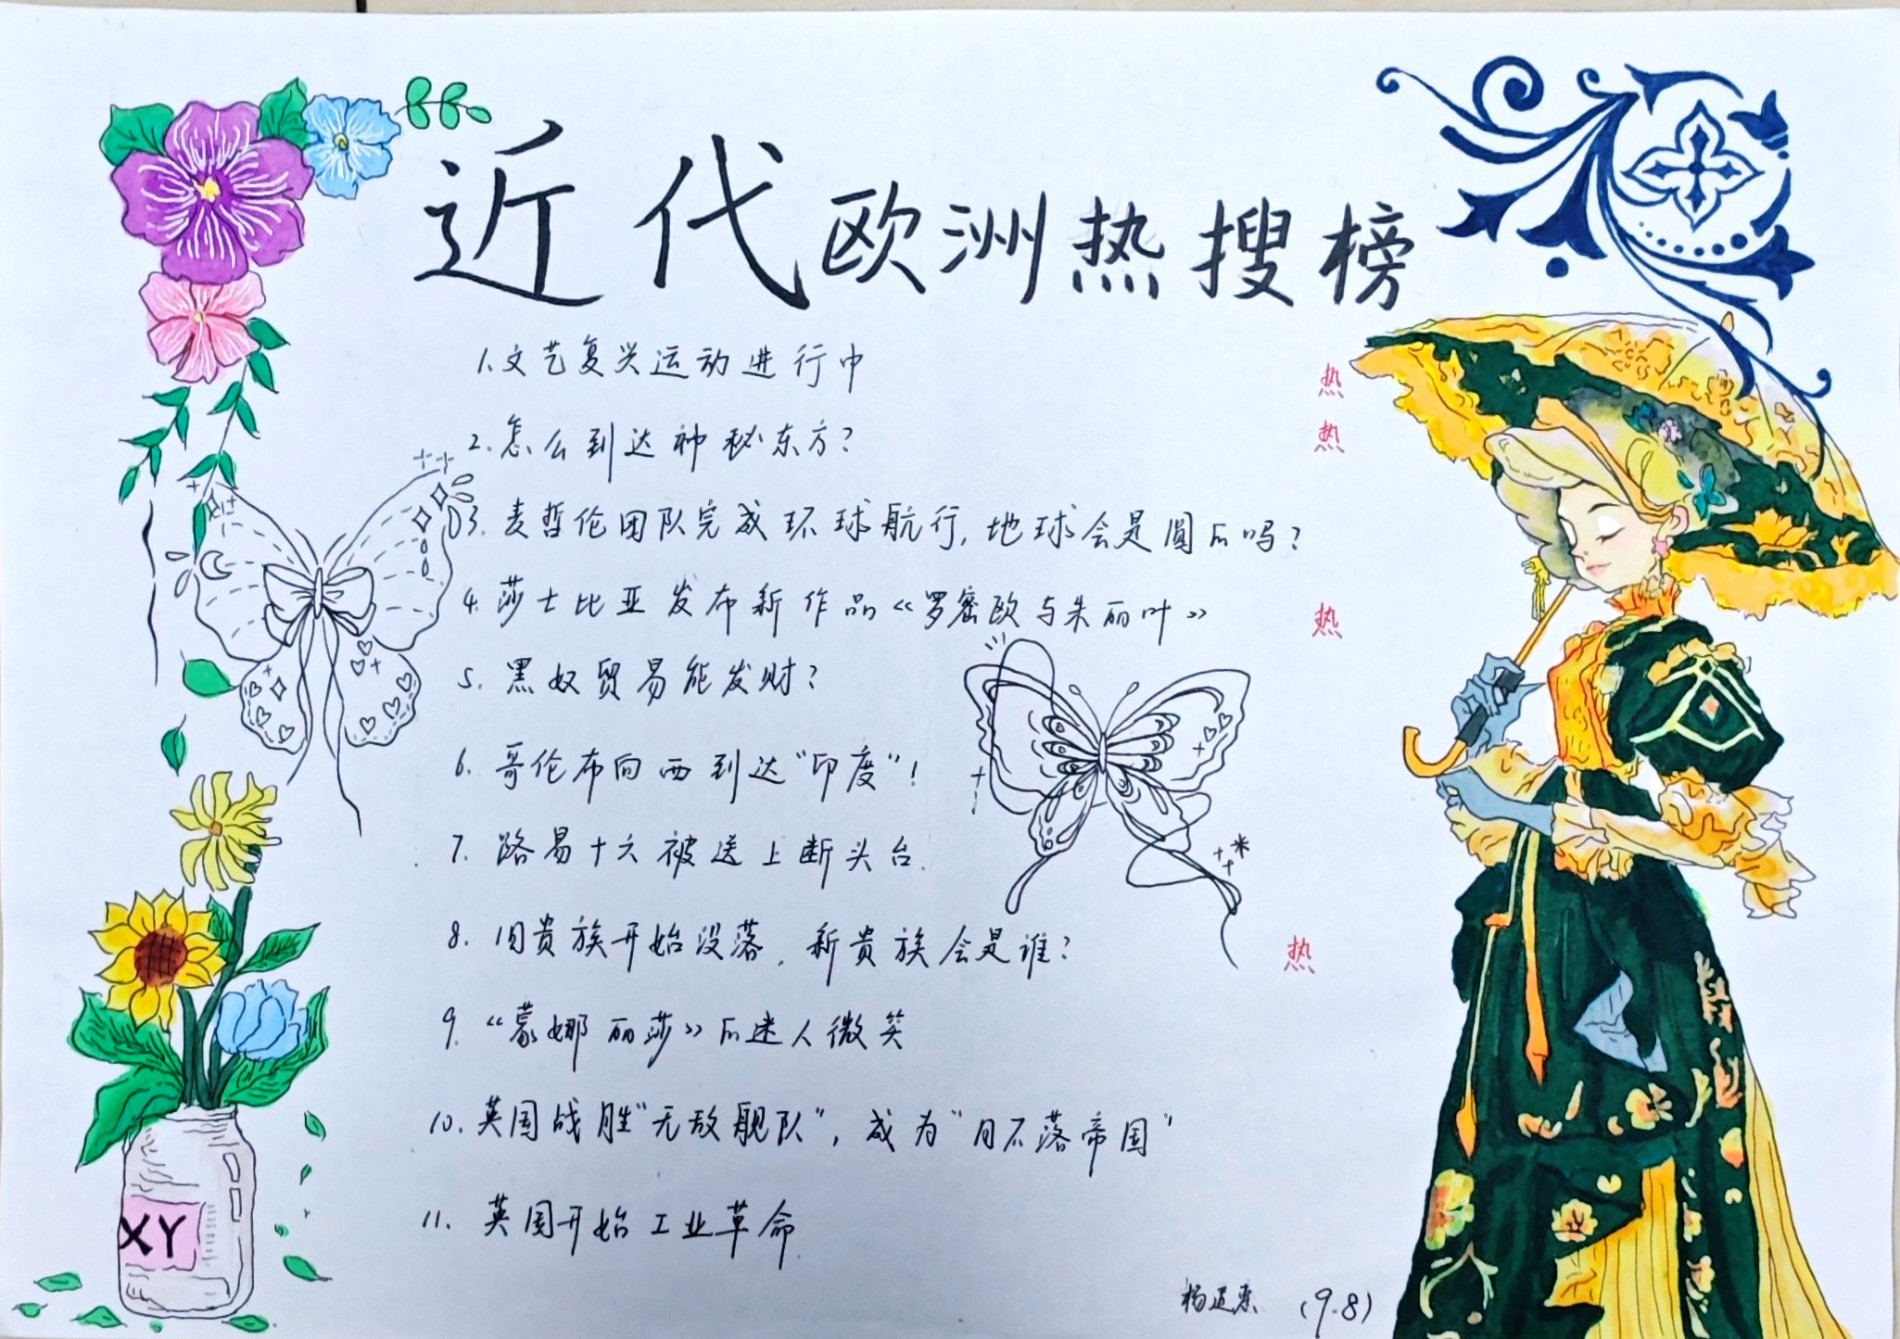 近代欧洲热搜榜
1.文艺复兴运动进行中 热
2.怎么到达神秘东方? 热
3.麦哲伦团队完成环球航行,地球会是圆的吗?
4.莎士比亚发布新作品《罗密欧与朱丽叶》 热
5.黑奴贸易能发财?
6.哥伦布向西到达“印度”!
7.路易十六被送上断头台.
8.旧贵族开始没落,新贵族会是谁? 热
9.《蒙娜丽莎》的迷人微笑
10.英国战胜“无敌舰队”,成为“日不落帝国”
11.英国开始工业革命.
XY
(9.8)